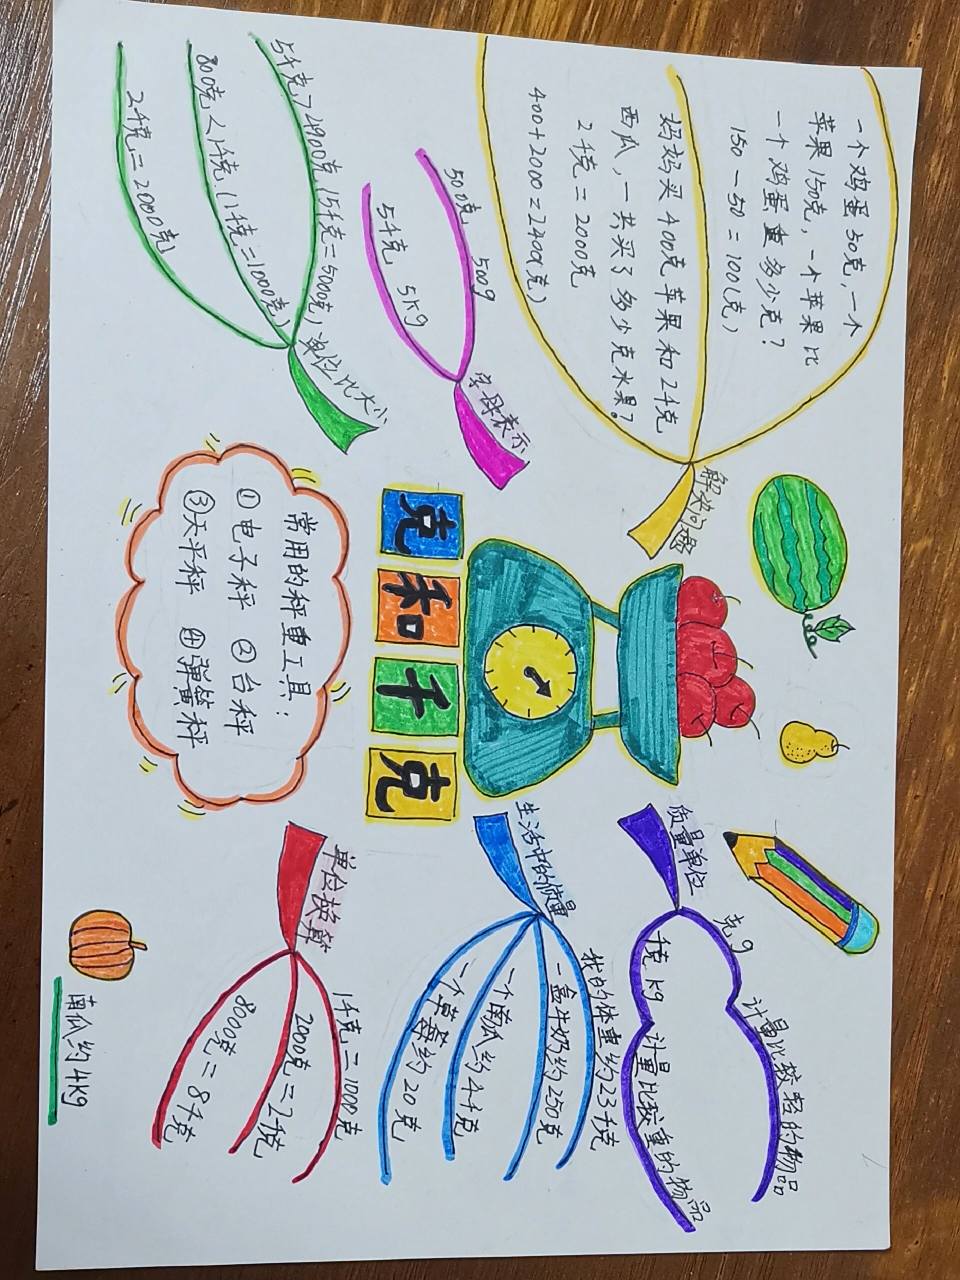 克和千克
解决问题
一个鸡蛋50克,一个
苹果150克,一个苹果比
一个鸡蛋重多少克?
150-50=100(克)
妈妈买400克苹果和2千克
西瓜,一共买了多少克水果?
2千克=2000克
400+2000=2400(克)
字母表示
500克 500g
5千克 5Kg
单位比大小
5千克>4900克(5千克=5000克)
800克<1千克(1千克=1000克)
2千克=2000克
常用的秤重工具:
①电子秤 ②台秤
③天平秤 ④弹簧秤
质量单位
克g 计量比较轻的物品
千克 Kg 计量比较重的物品
生活中的质量
我的体重约23千克
一盒牛奶约250克
一个南瓜约4千克
一个草莓约20克
单位换算
1千克=1000克
2000克=2千克
8000克=8千克
南瓜约4Kg